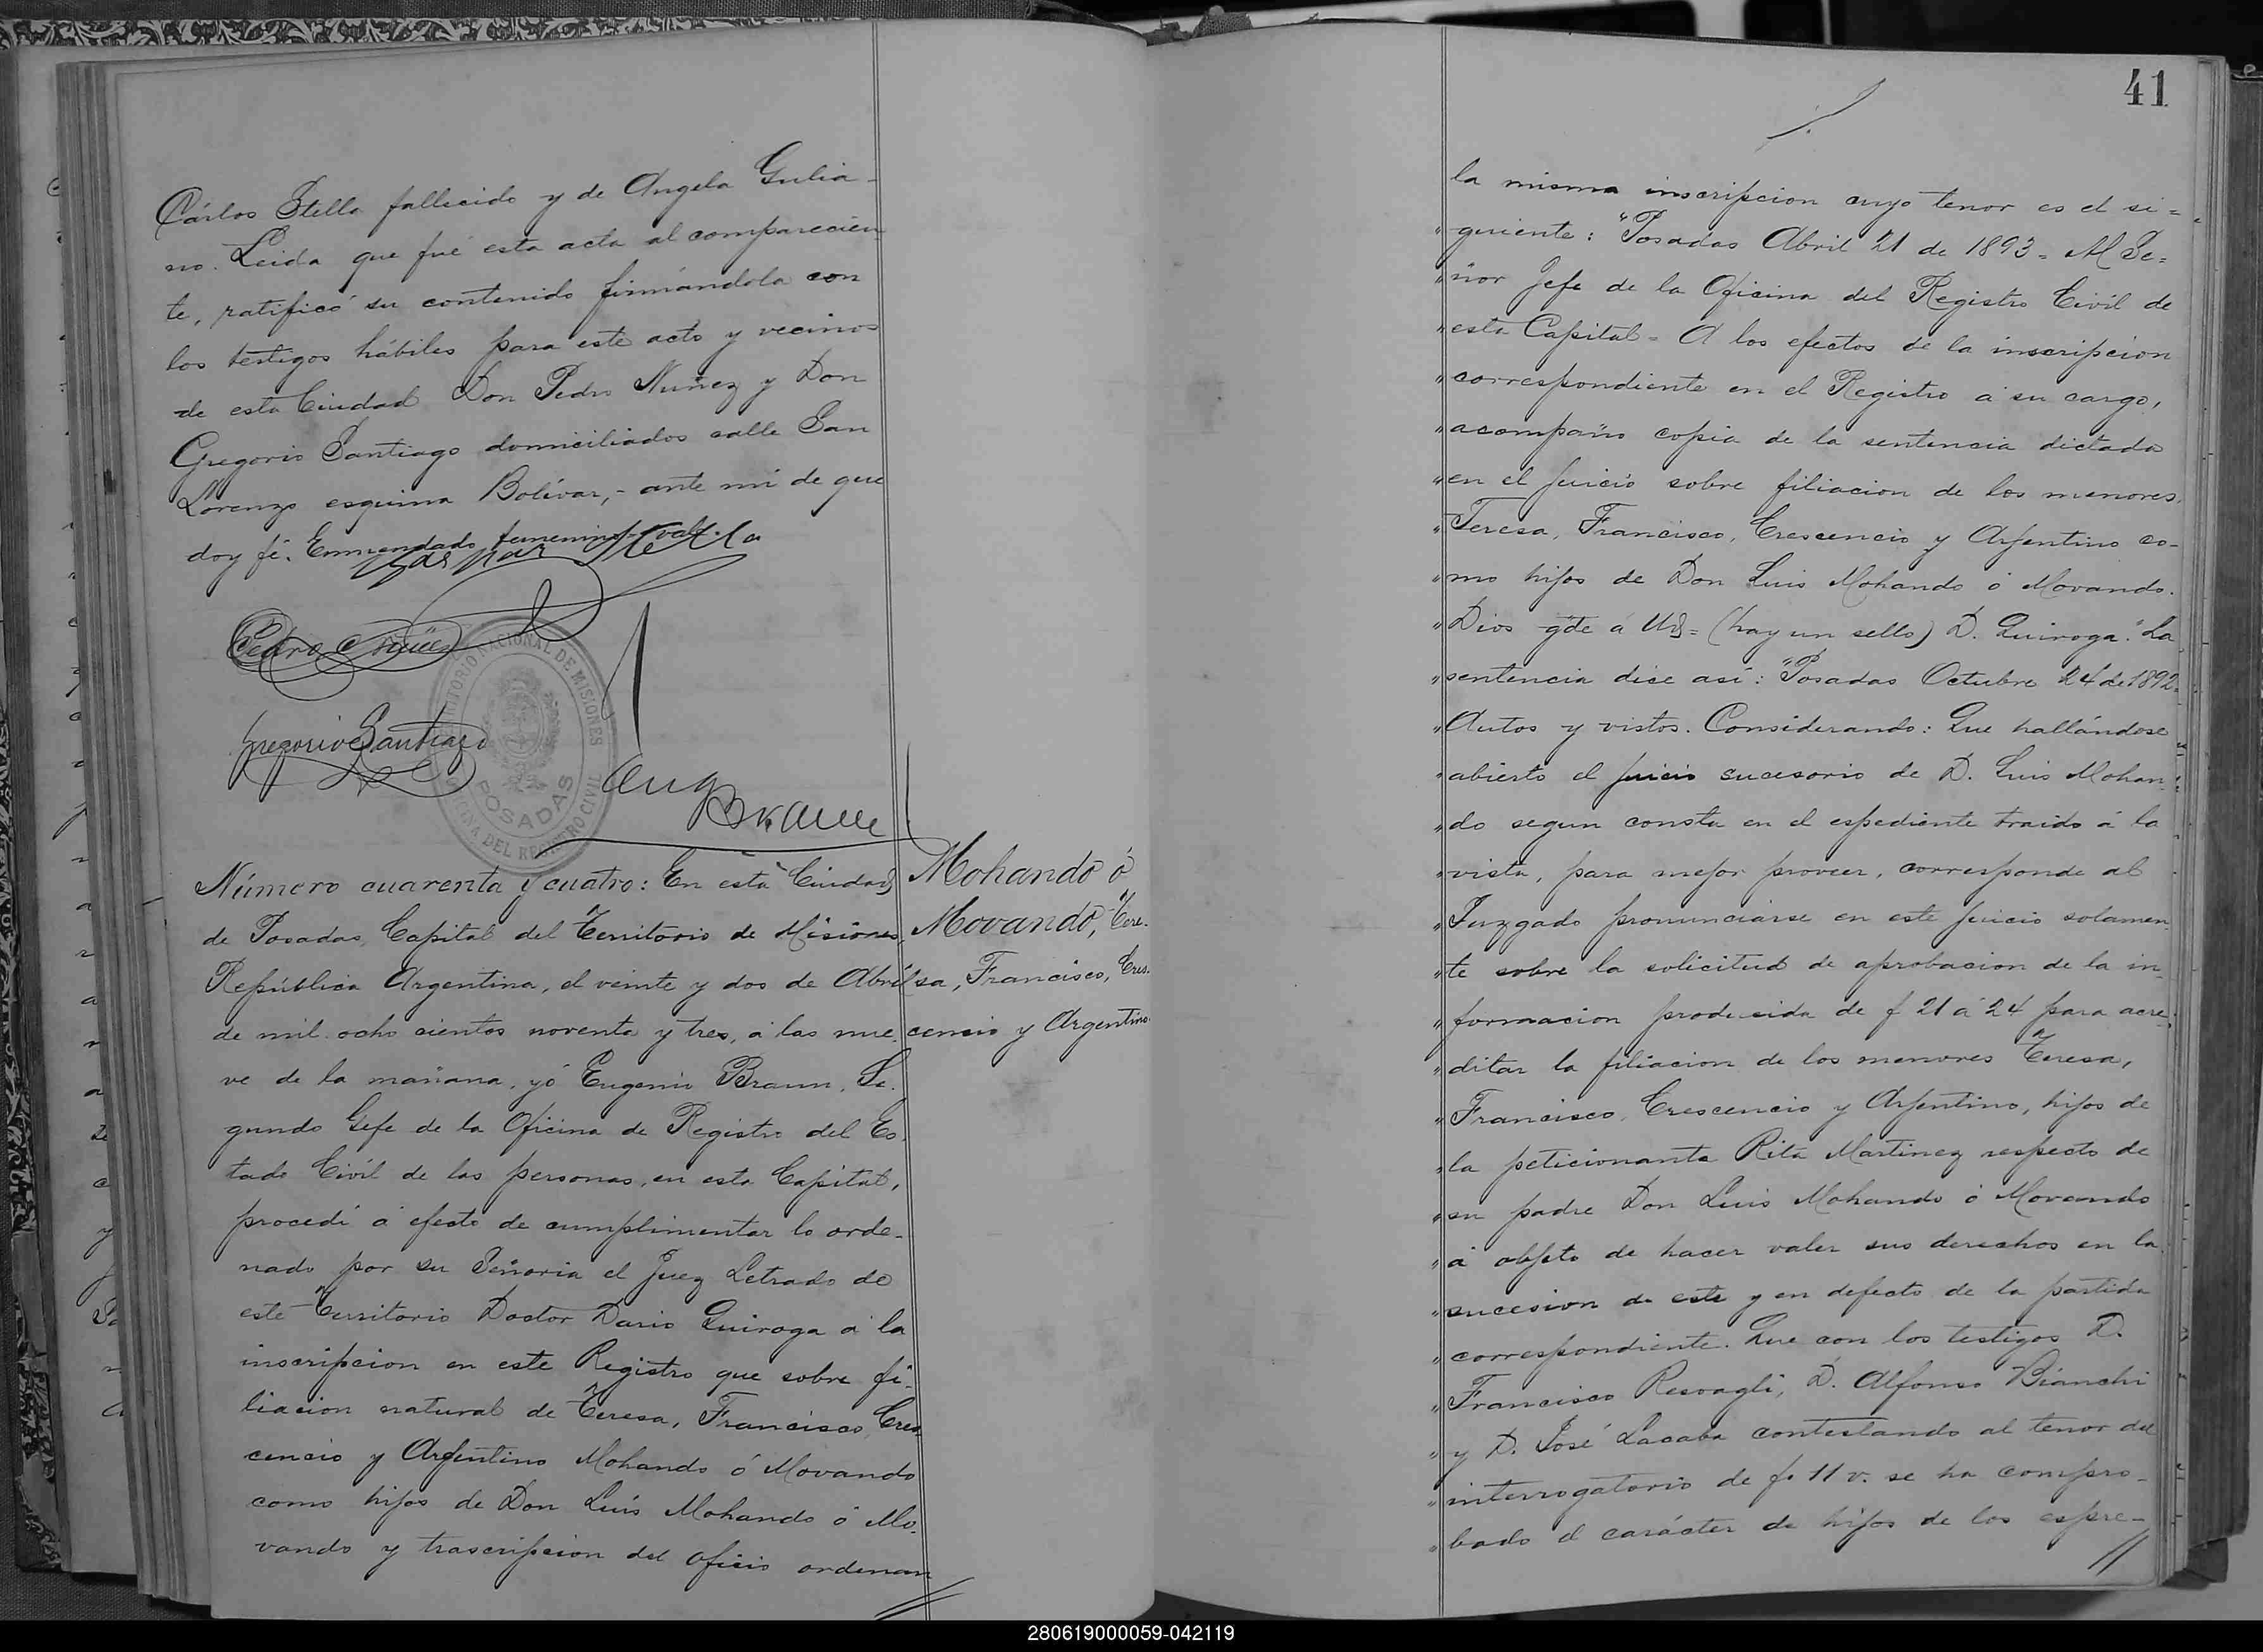 Cárlos Stella fallecido y de Angela Gulia-
no. Leida que fué esta acta al comparecien
te, ratificó su contenido firmándola con
los testigos hábiles para este acto y vecinos
de esta Ciudad Don Pedro Nuñez y Don
Gregorio Santiago domiciliados calle San
Lorenzo esquina Bolívar,- ante mi de que
doy fé. Enmendado femenino-vale.
Stella
Pedro Nuñes
Gregorio Santiago
TERRITORIO NACIONAL DE MISIONES
POSADAS
OFICINA DEL REGISTRO CIVIL
Eug Braun
Número cuarenta y cuatro: En esta Ciudad
de Posadas, Capital del Territorio de Misiones,
República Argentina, el veinte y dos de Abril
de mil ocho cientos noventa y tres, á las nue
ve de la mañana, yó Eugenio Braun, Se.
gundo Gefe de la Oficina de Registro del Es.
tado Civil de las personas, en esta Capital,
procedí á efecto de cumplimentar lo orde-
nado por su Señoria el Juez Letrado de
este Territorio Doctor Dario Quiroga á la
inscripcion en este Registro que sobre fi-
liacion natural de Teresa, Francisco, Cres
cencio y Argentino Mohando ó Movando
como hijos de Don Luís Mohando ó Mo.
vando y trascripcion del oficio ordenan
Mohando ó
Movando, Tere-
sa, Francisco, Cres.
cencio y Argentino.
41
la misma inscripcion cuyo tenor es el si=
" guiente: "Posadas Abril 21 de 1893 = Al Se=
" ñor Jefe de la Oficina del Registro Civil de
" esta Capital = A los efectos de la inscripcion
" correspondiente en el Registro á su cargo,
" acompaño copia de la sentencia dictada
" en el juicio sobre filiacion de los menores
" Teresa, Francisco, Crescencio y Argentino co-
" mo hijos de Don Luis Mohando ó Movando.
" Dios gde á Ud = (hay un sello) D. Quiroga." La
" sentencia dice así: "Posadas Octubre 24 de 1892.
" Autos y vistos. Considerando: Que hallándose
" abierto el juicio sucesorio de D. Luis Mohan
" do segun consta en el espediente traido á la
" vista, para mejor proveer, corresponde al
" Juzgado pronunciarse en este juicio solamen
" te sobre la solicitud de aprobacion de la in-
" formacion producida de f 21 á 24 para acre-
" ditar la filiacion de los menores Teresa,
" Francisco, Crescencio y Argentino, hijos de
" la peticionante Rita Martinez respecto de
" su padre Don Luis Mohando ó Movando
" á objeto de hacer valer sus derechos en la
" sucesion de este y en defecto de la partida
" correspondiente. Que con los testigos D.
" Francisco Resoagli, D. Alfonso Bianchi
" y D. José Lacaba contestando al tenor del
" interrogatorio de f. 11 v. se ha compro-
" bado el carácter de hijos de los espre-
280619000059-042119